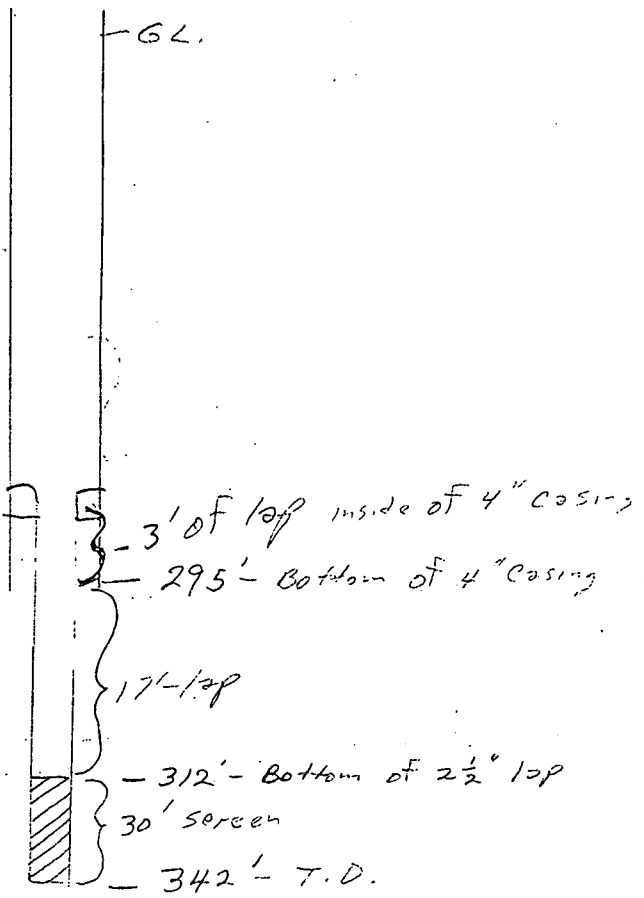 GL.
3' of lap inside of 4" casing
295'- Bottom of 4" Casing
17'-lap
312'- Bottom of 2 1/2" lap
30' screen
342'- T.D.